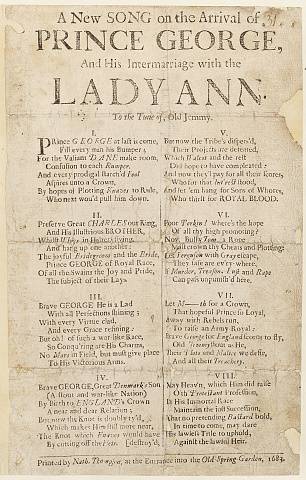 A New SONG on the Arrival of
PRINCE GEORGE,
And His Intermarriage with the
LADY ANN.
To the Tune of, Old Jemmy.
I.
PRince GEORGE at last is come,
Fill every man his Bumper;
For the Valiant DANE make room,
Confusion to each Rumper,
And every prodigal Barch'd Fool
Aspires unto a Crown,
By hopes of Plotting Knaves to Rule,
Who next wou'd pull him down.
II.
Preserve Great CHARLES our King,
And His Illustrious BROTHER,
Whilst Whigs in Halters swing,
And hang up one another:
The joyful Bridegroom and the Bride,
Prince GEORGE of Royal Race,
Of all the Swains the Joy and Pride,
The subject of their Lays
III.
Brave GEORGE He is a Lad
With all Perfections shining;
With every Virtue clad,
And every Grace refining:
But oh! of such a war-like Race,
So Conqu'ring are His Charms,
No Mars in Field, but must give place
To His Victorious Arms.
IV.
Brave GEORGE, Great Denmark's Son
(A stout and war-like Nation)
By Birth to ENGLAND's Crown
A near and dear Relation;
But now the Knot is doubly ty'd,
Which makes Him still more near,
The Knot which Fawxes would have
By cutting off the Heir. [destroy'd,
V.
But now the Tribe's dispers'd,
Their Projects are defeated,
Which Walcot and the rest
Did hope to have compleated:
And now they'l pay for all their scores,
Who for that Int'rest stood,
And let 'em hang for Sons of Whores,
Who thirst for ROYAL BLOOD.
VI.
Poor Perkin! where's the hope
Of all thy high promoting?
Now, Bully Tom, a Rope
Has crown'd thy Cheats and Plotting:
Let Ferguson with Gray escape,
They safe are ev'ry where,
If Murder, Treason, and Rape
Can pass unpunish'd here.
VII.
Let M—th for a Crown,
That hopeful Prince so Loyal,
Away with Rebels run,
To raise an Army Royal:
Brave George for England scorns to fly,
Old Jemmy stout as He,
Their Plots and Malice we defie,
And all their Treachery.
VIII.
May Heav'n, which Him did raise
O'th' Protestant Profession,
In His Immortal Race
Maintain the just Succession,
That no pretending Bastard bold,
In time to come, may dare
His lawless Title to uphold,
Against the lawful Heir.
Printed by Nath. Thompson, at the Entrance into the Old-Spring Garden, 1683.